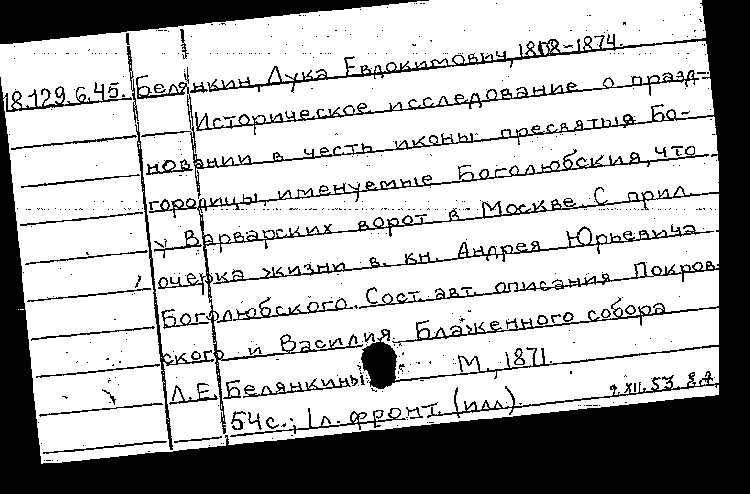 18.129.6.45. Белянкин, Лука Евдокимович, 1808-1874.
Историческое исследование о празд-
новании в честь иконы пресвятыя Бо-
городицы, именуемые Боголюбския, что
у Варварских ворот в Москве. С прил.
очерка жизни в. кн. Андрея Юрьевича
Боголюбского. Сост. авт. описания Покров-
ского и Василия Блаженного собора
Л.Е. Белянкины М., 1871.
54с.; 1л. фронт. (илл).
9.XII.53.